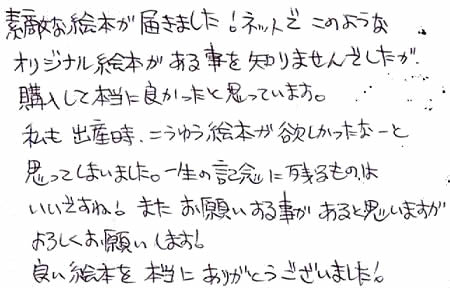 素敵な絵本が届きました！ネットでこのような
オリジナル絵本がある事を知りませんでしたが、
購入して本当に良かったと思っています。
私も出産時、こうゆう絵本が欲しかったなーと
思ってしまいました。一生の記念に残るものは
いいですね！またお願いする事があると思いますが
よろしくお願いします！
良い絵本を本当にありがとうございました！